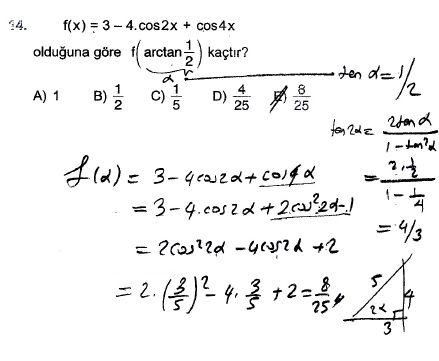 34. f(x) = 3 – 4.cos2x + cos4x
olduğuna göre f(arctan 1/2) kaçtır?
α
tan α = 1/2
A) 1 B) 1/2 C) 1/5 D) 4/25 E) 8/25
tan 2α = 2tan α / 1 – tan²α
f(α) = 3 – 4cos2α + cos4α
= 2.1/2 / 1 – 1/4
= 3 – 4.cos2α + 2cos²2α – 1
= 4/3
= 2cos²2α – 4cos2α + 2
= 2.(3/5)² – 4.3/5 + 2 = 8/25
5 4
2α
3